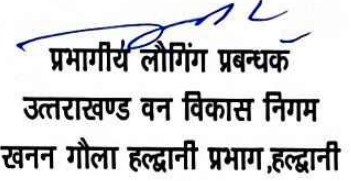 प्रभागीय लौगिंग प्रबन्धक
उत्तराखण्ड वन विकास निगम
खनन गौला हल्द्वानी प्रभाग,हल्द्वानी